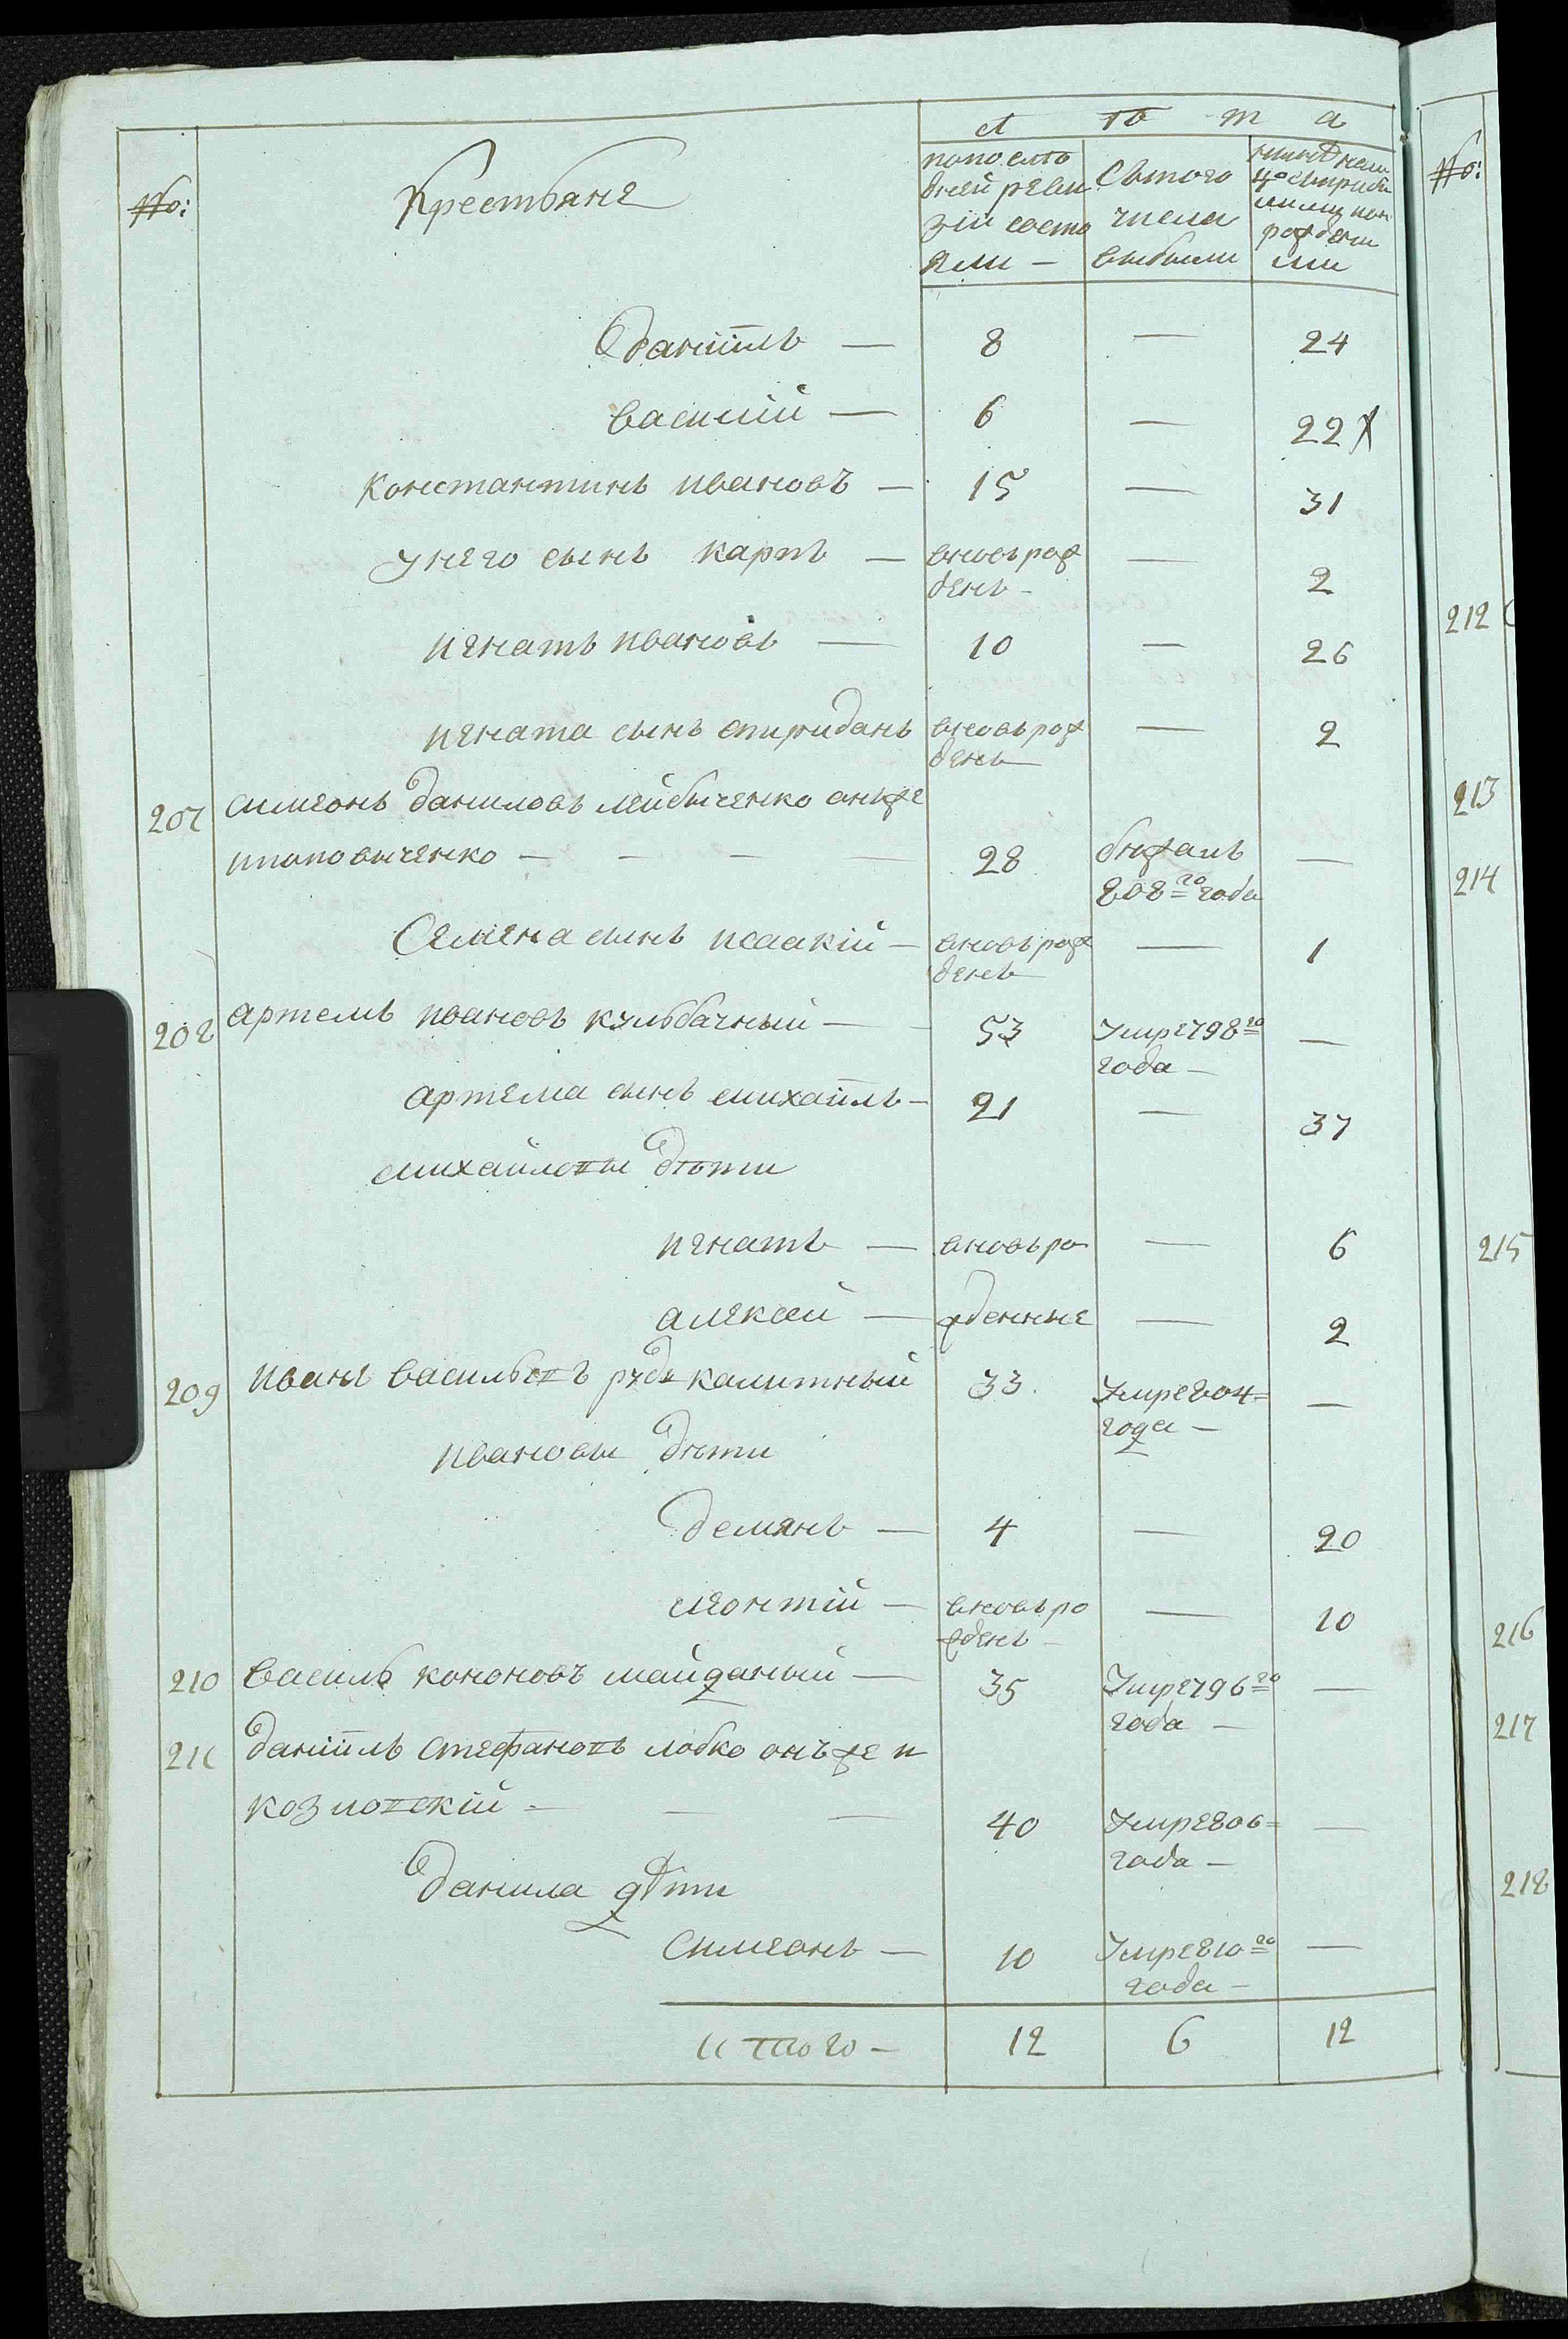 Л ѣ т а
№:
Крестьяне
попослѣ
дней реви
зіи состо
яли —
Сътого
числа
выбыли
рожденни
ми
№:
Даніилъ — 8 — 24
василій — 6 — 22
константинъ ивановъ — 15 — 31
унего сынъ карпъ — вновьрож — 2
денъ —
игнатъ ивановъ — 10 — 26
игната сынъ спиридонъ вновьрож — 2
денъ —
207 симеонъ даниловъ онъже
28 бѣжалъ —
808го года
Семена сынъ исаакій — вновьрож — 1
денъ —
208 артемъ ивановъ кульбачный — 53 умре798го —
года —
артема сынъ михаилъ — 21 — 37
михайловы дѣти
игнатъ — вновьро — 6
алексей — жденные — 2
209 иванъ васильевъ рудь калитный 33 умре804= —
года —
ивановы дѣти
демянъ — 4 — 20
леонтій — вновьро — 10
жденъ —
210 василь кононовъ майданый — 35 умре796го —
года —
211 даніилъ стефановъ лобко онъже и
козловскій — — — 40 умре806= —
года —
данила дѣти
симеонъ — 10 умре810го —
года —
итого — 12 6 12
212
213
214
215
216
217
218